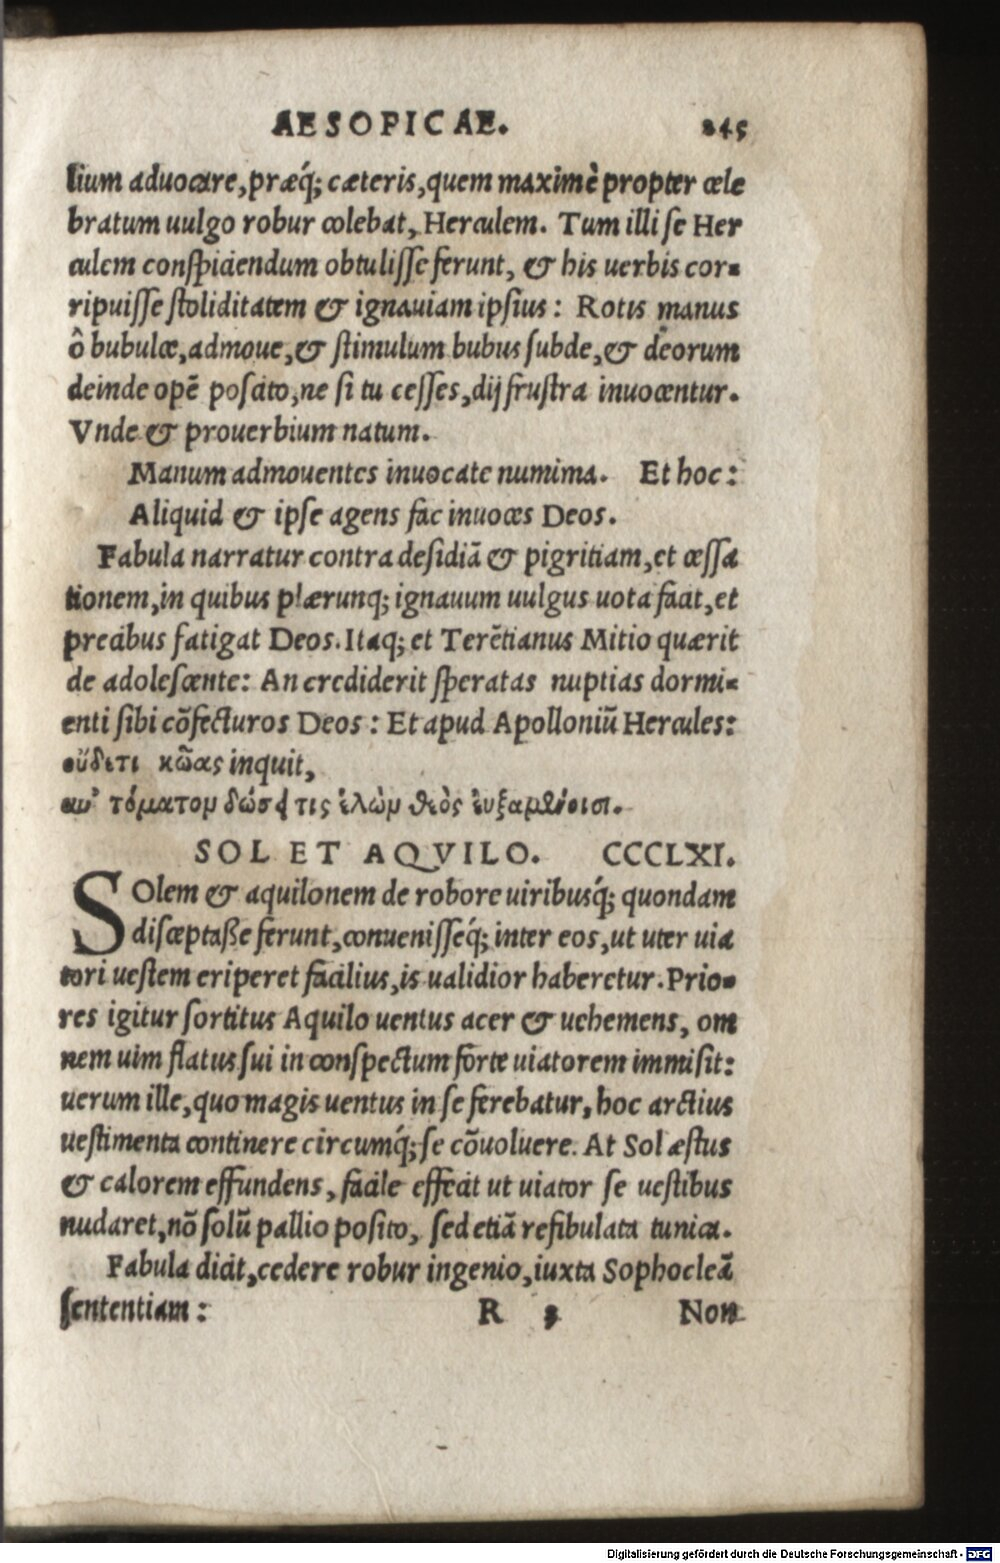 AESOPICAE. 245
lium aduocare, præq́; cæteris, quem maximè propter cele
bratum uulgo robur colebat, Herculem. Tum illi se Her
culem conspiciendum obtulisse ferunt, & his uerbis cor-
ripuisse stoliditatem & ignauiam ipsius: Rotis manus
ô bubulce, admoue, & stimulum bubus subde, & deorum
deinde opẽ poscito, ne si tu cesses, dij frustra inuocentur.
Vnde & prouerbium natum.
Manum admouentes inuocate numima. Et hoc:
Aliquid & ipse agens fac inuoces Deos.
Fabula narratur contra desidiã & pigritiam, et cessa
tionem, in quibus plærunq; ignauum uulgus uota facit, et
precibus fatigat Deos. Itaq; et Terẽtianus Mitio quærit
de adolescente: An crediderit speratas nuptias dormi-
enti sibi cõfecturos Deos: Et apud Apolloniũ Hercules:
οὔδετι κῶας inquit,
τις ἑλὼν θεὸς
SOL ET AQVILO. CCCLXI.
SOlem & aquilonem de robore uiribusq́; quondam
disceptaße ferunt, conuenisseq́; inter eos, ut uter uia
tori uestem eriperet facilius, is ualidior haberetur. Prio-
res igitur sortitus Aquilo uentus acer & uehemens, om
nem uim flatus sui in conspectum forte uiatorem immisit:
uerum ille, quo magis uentus in se ferebatur, hoc arctius
uestimenta continere circumq́; se cõuoluere. At Sol æstus
& calorem effundens, facile effecit ut uiator se uestibus
nudaret, nõ solũ pallio posito, sed etiã refibulata tunica.
Fabula dicit, cedere robur ingenio, iuxta Sophocleã
sententiam: R 3 Non
Digitalisierung gefördert durch die Deutsche Forschungsgemeinschaft - DFG